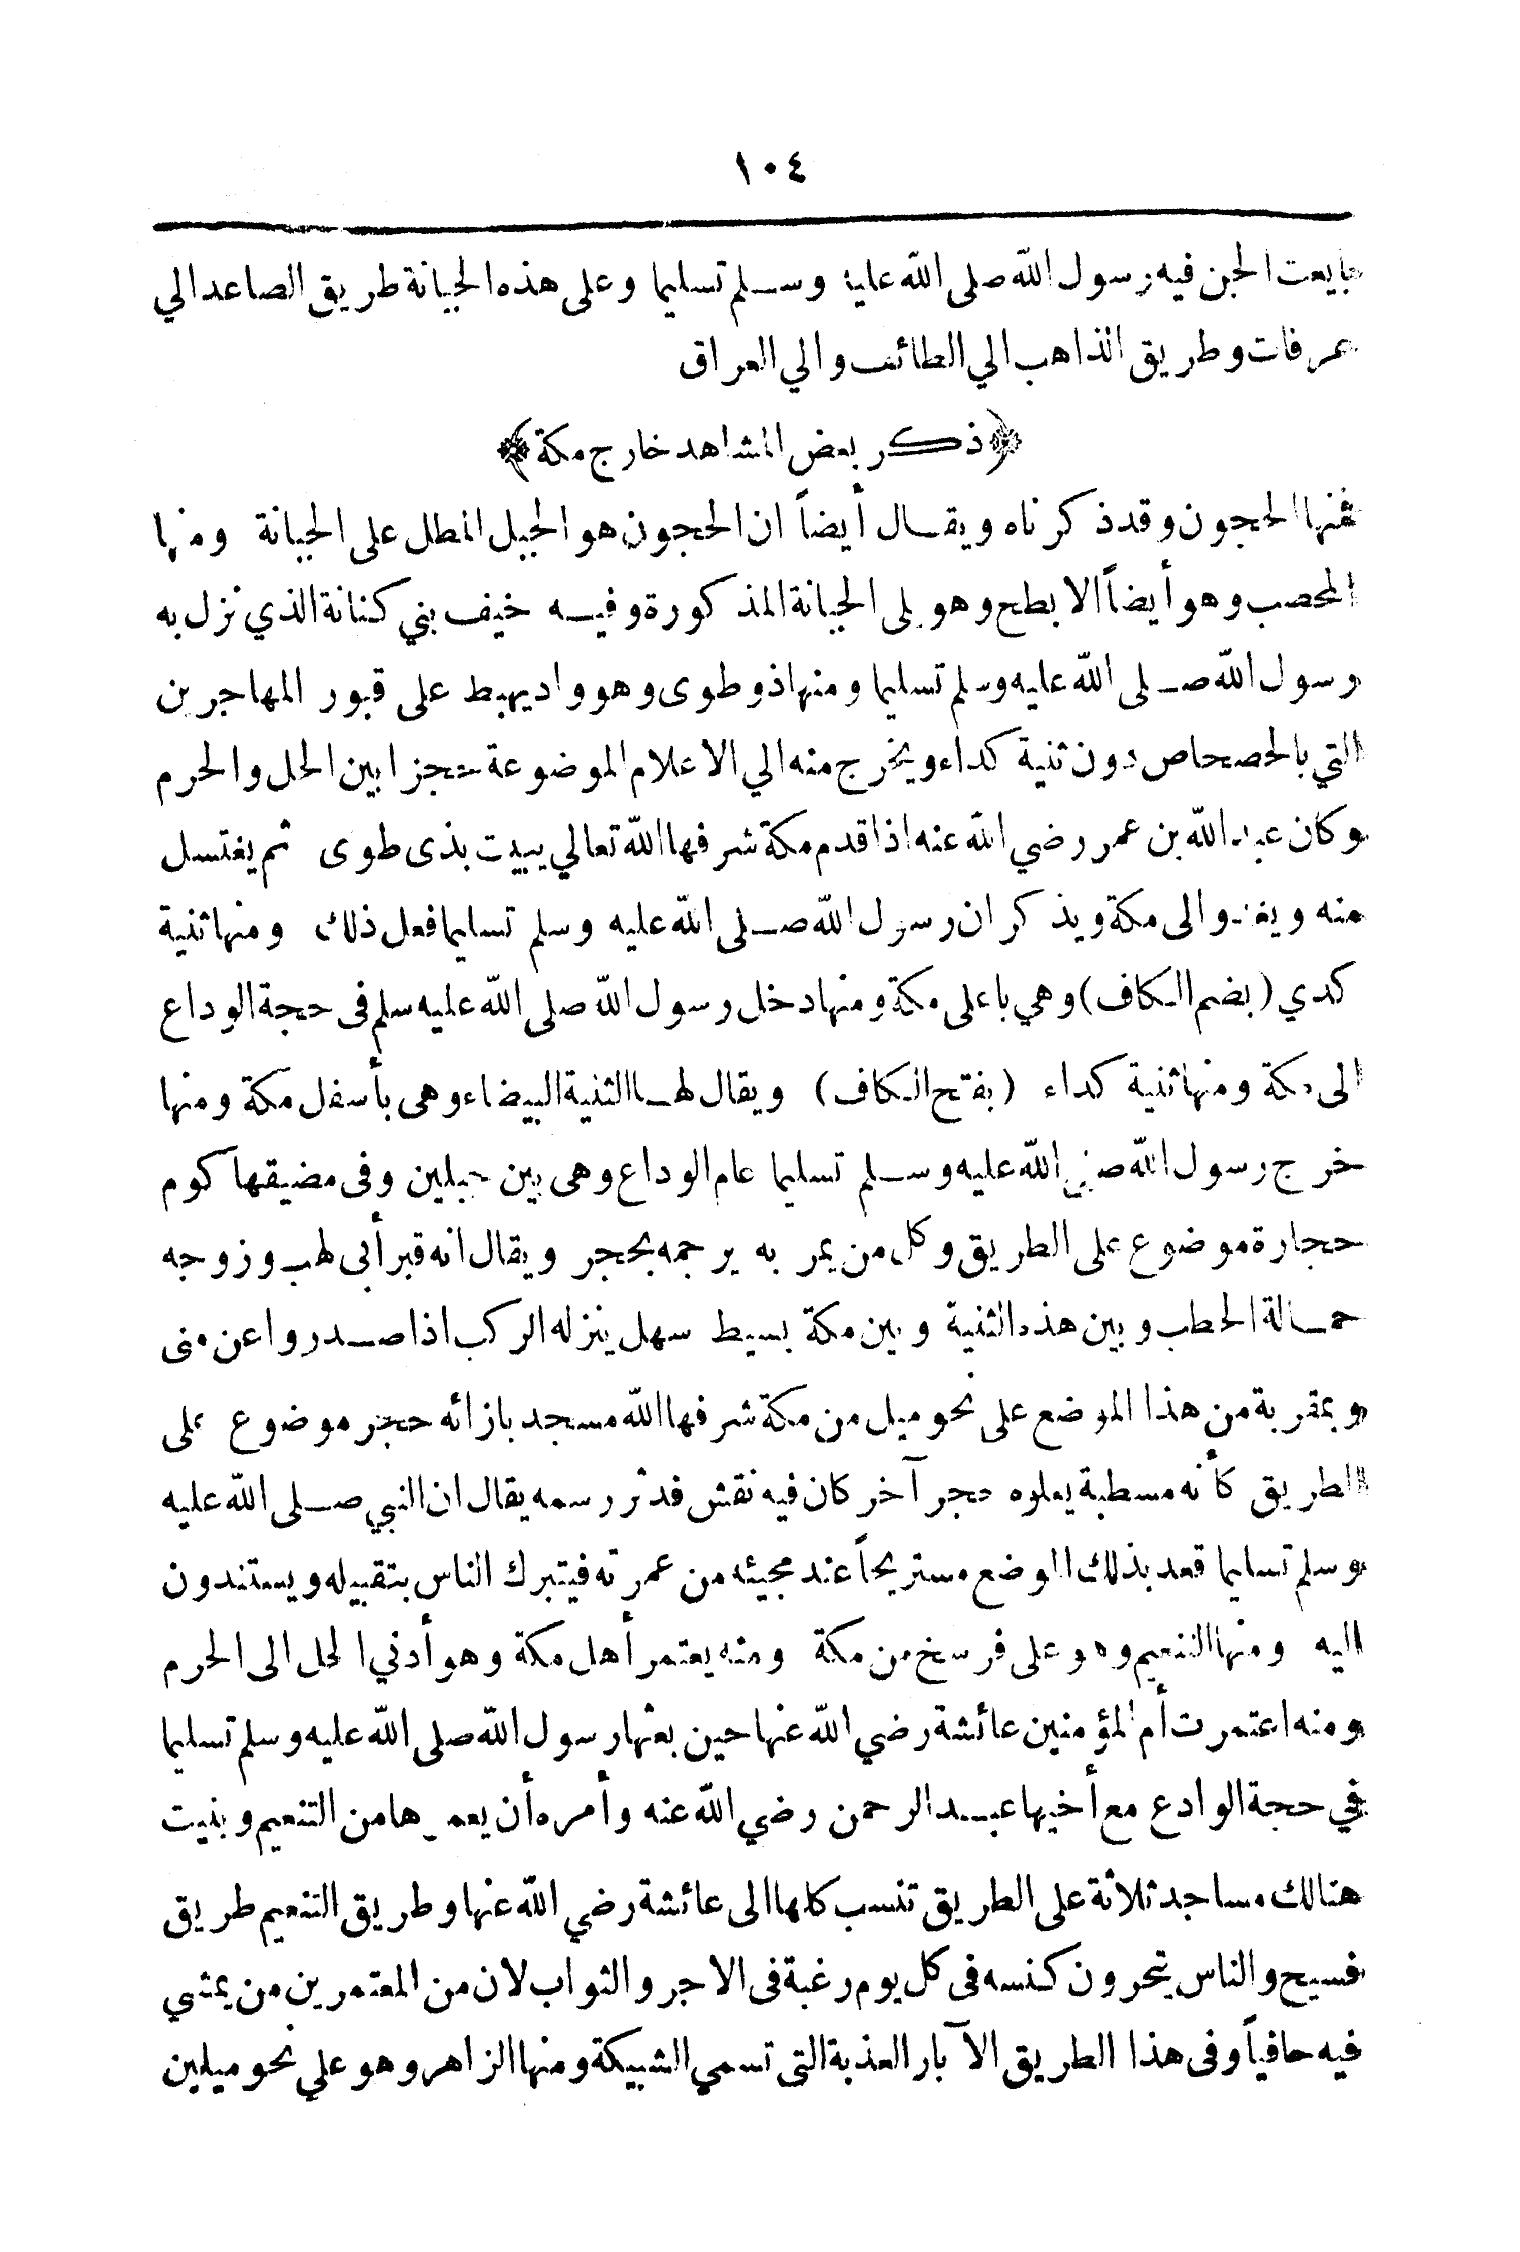 ١٠٤
بايعت الجن فيه رسول الله صلى الله عليه وسلم تسليما وعلى هذه الجبانة طريق الصاعد الي
عرفات وطريق الذاهب الي الطائف والي العراق
﴿ذكر بعض المشاهد خارج مكة﴾
فمنها الحجون وقد ذكرناه ويقال أيضاً ان الحجون هو الجبل المطل على الجبانة ومنها
المحصب وهو أيضاً الابطح وهو يلى الجبانة المذكورة وفيه خيف بني كنانة الذي نزل به
رسول الله صلى الله عليه وسلم تسليما ومنها ذو طوى وهو واد يهبط على قبور المهاجرين
التي بالحصحاص دون ثنية كداء ويخرج منه الي الاعلام الموضوعة حجزا بين الحل والحرم
وكان عبد الله بن عمر رضي الله عنه اذا قدم مكة شرفها الله تعالي يبيت بذى طوى ثم يغتسل
منه ويغدو الى مكة ويذكر ان رسول الله صلى الله عليه وسلم تسليما فعل ذلك ومنها ثنية
كدي (بضم الكاف) وهي باعلى مكة ومنها دخل رسول الله صلى الله عليه سلم فى حجة الوداع
الى مكة ومنها ثنية كداء (بفتح الكاف) ويقال لها الثنية البيضاء وهى بأسفل مكة ومنها
خرج رسول الله صلى الله عليه وسلم تسليما عام الوداع وهى بين جبلين وفى مضيقها كوم
حجارة موضوع على الطريق وكل من يمر به يرجمه بحجر ويقال انه قبر أبى لهب وزوجه
حمالة الحطب وبين هذه الثنية وبين مكة بسيط سهل ينزله الركب اذا صدروا عن منى
وبمقربة من هذا الموضع على نحو ميل من مكة شرفها الله مسجد بازائه حجر موضوع على
الطريق كأنه مسطبة يعلوه حجر آخر كان فيه نقش فدثر رسمه يقال ان النبي صلى الله عليه
وسلم تسليما قعد بذلك الموضع مستريحاً عند مجيئه من عمرته فيتبرك الناس بتقبيله ويستندون
اليه ومنها التنعيم وهو على فرسخ من مكة ومنه يعتمر أهل مكة وهو أدني الحل الى الحرم
ومنه اعتمرت أم المؤمنين عائشة رضي الله عنها حين بعثها رسول الله صلى الله عليه وسلم تسليما
في حجة الوادع مع أخيها عبد الرحمن رضي الله عنه وأمره أن يعمرها من التنعيم وبنيت
هنالك مساجد ثلاثة على الطريق تنسب كلها الى عائشة رضي الله عنها وطريق التنعيم طريق
فسيح والناس يتحرون كنسه فى كل يوم رغبة فى الاجر والثواب لان من المعتمرين من يمشي
فيه حافياً وفى هذا الطريق الآبار العذبة التى تسمي الشبيكة ومنها الزاهر وهو علي نحو ميلين